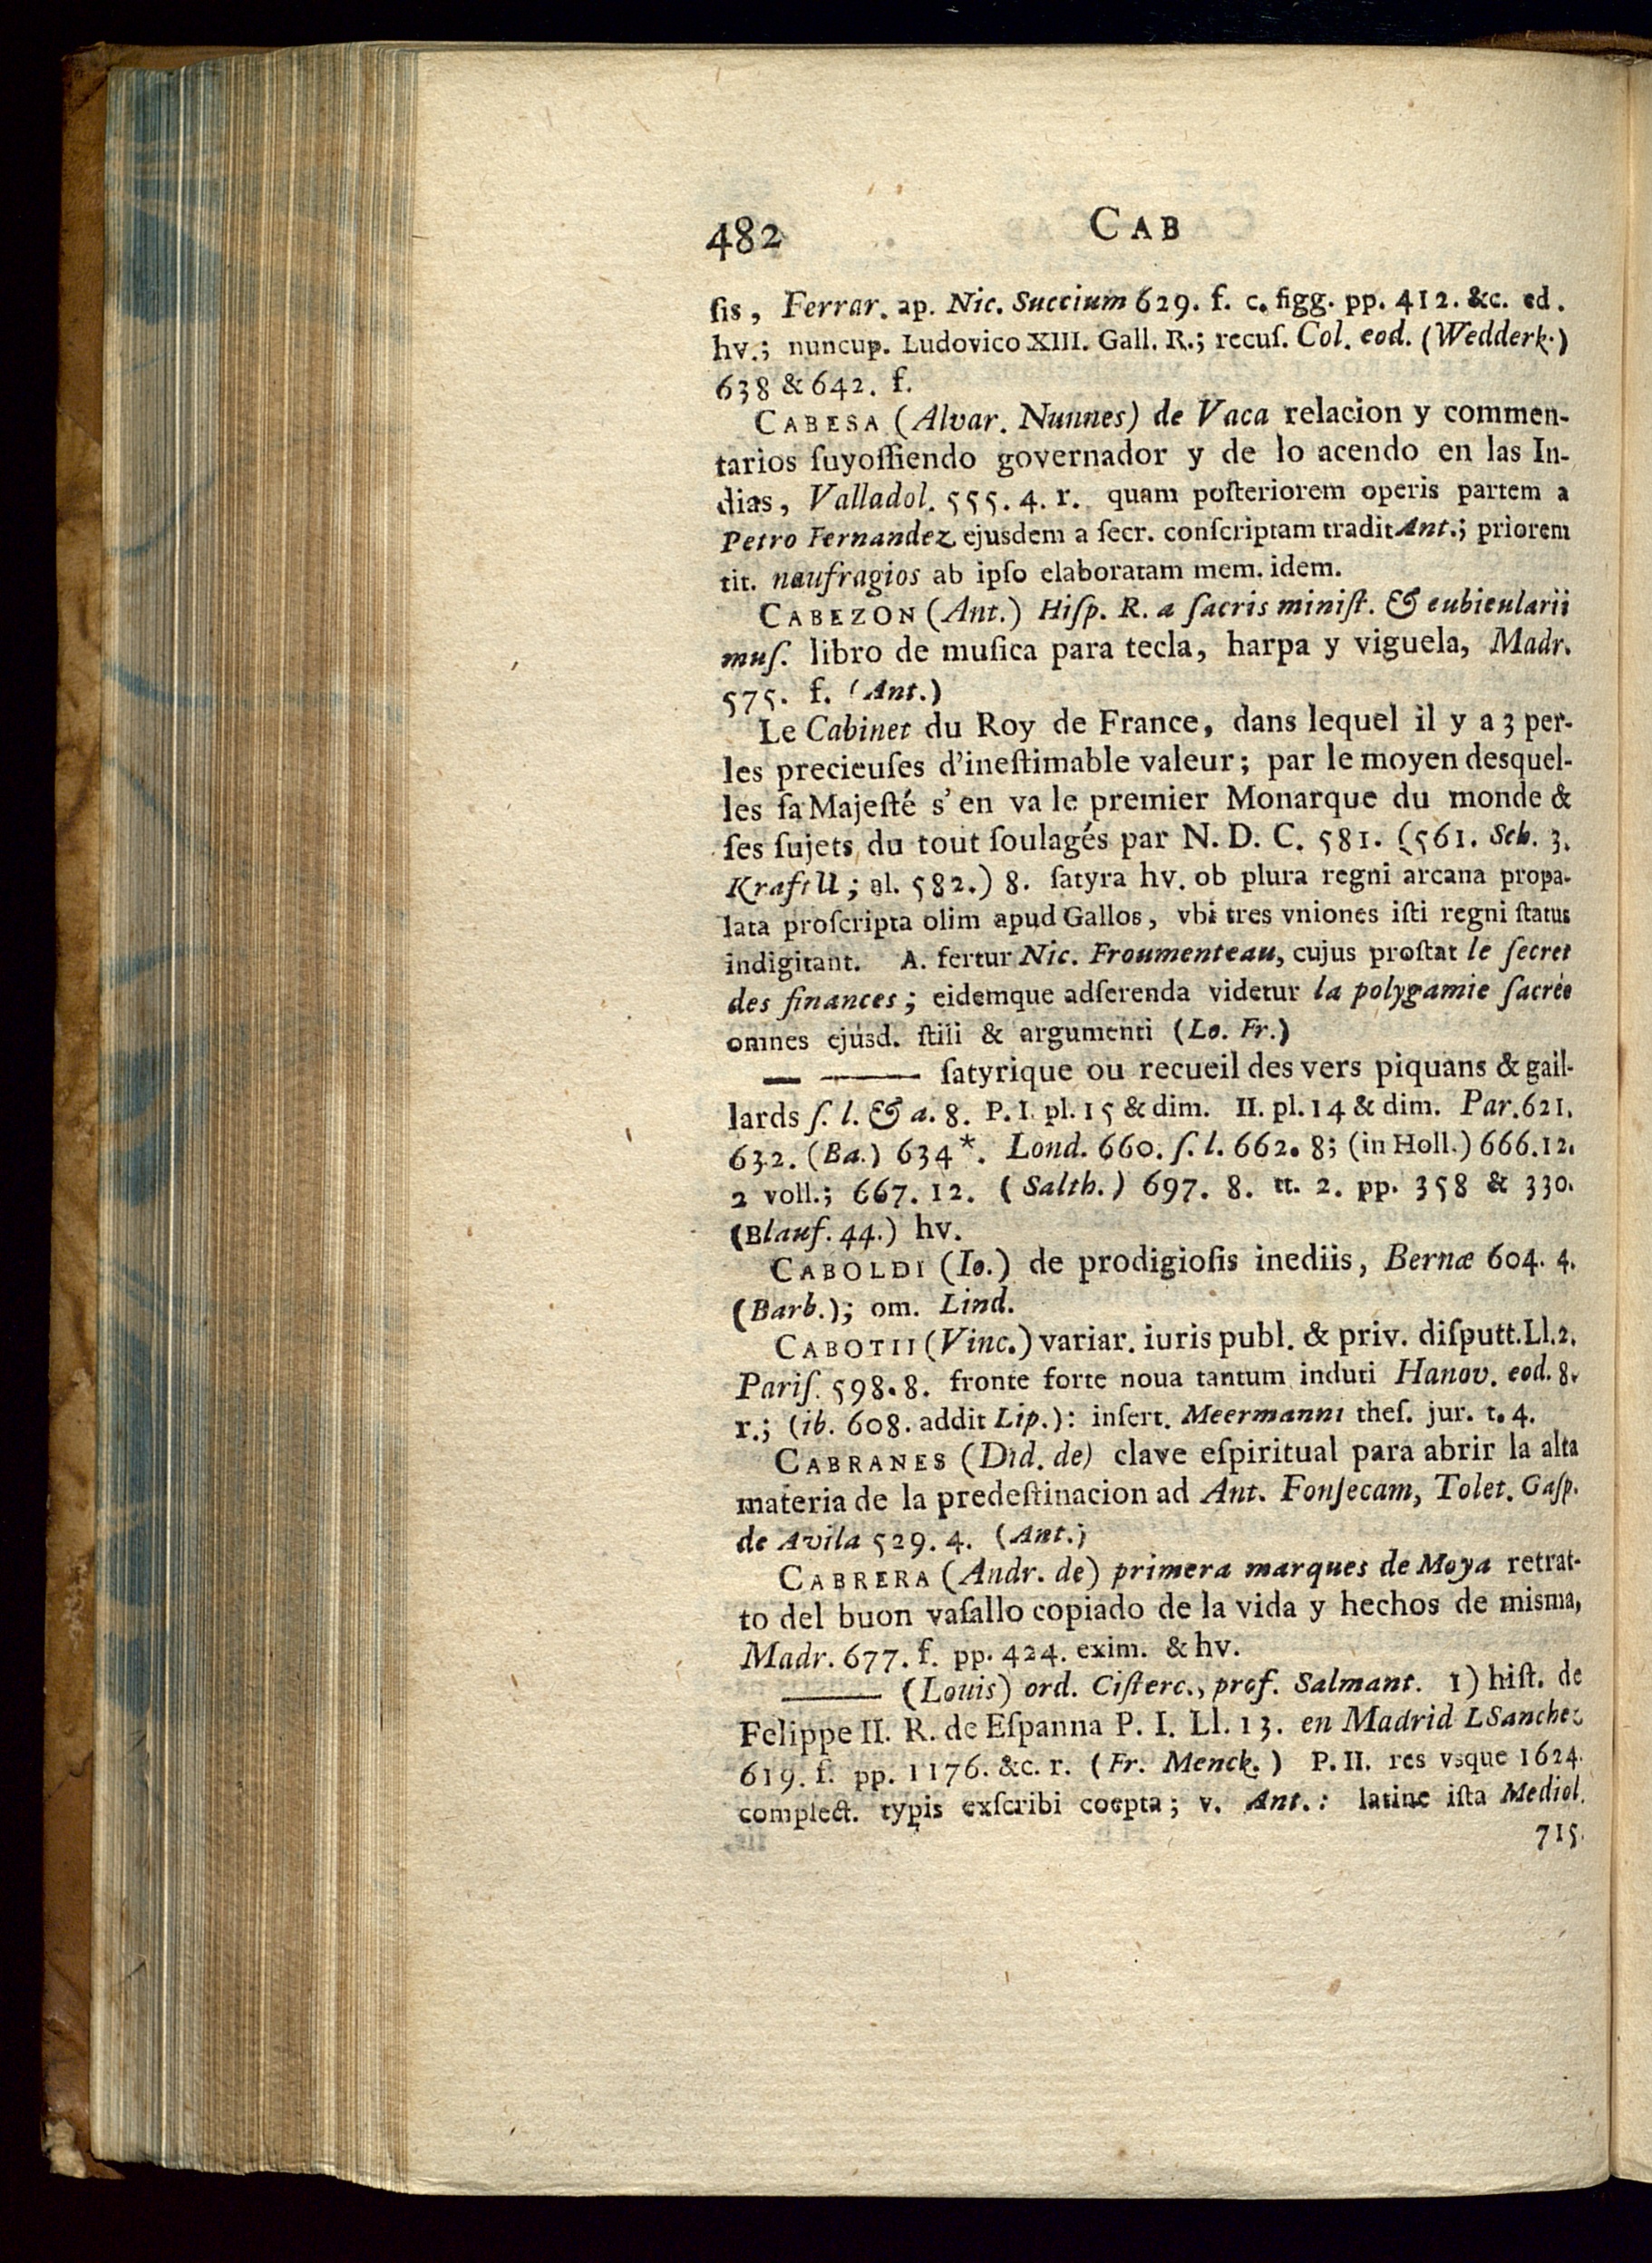 482 CAB
ſis, Ferrar. ap. Nic. Succium 629. f. c. figg. pp. 412. &c. ed.
hv.; nuncup. Ludovico XIII. Gall. R.; recuſ. Col. eod. (Wedderk.)
638 & 642. f.
CABESA (Alvar. Nunnes) de Vaca relacion y commen-
tarios ſuyosſiendo governador y de lo acendo en las In-
dias, Valladol. 555. 4. r. quam poſteriorem operis partem a
Petro Fernandez ejusdem a ſecr. conſcriptam tradit Ant.; priorem
tit. naufragios ab ipſo elaboratam mem. idem.
CABEZON (Ant.) Hiſp. R. a ſacris miniſt. & eubieularii
muſ. libro de muſica para tecla, harpa y viguela, Madr.
575. f. (Ant.)
Le Cabinet du Roy de France, dans lequel il y a 3 per-
les precieuſes d'ineſtimable valeur; par le moyen desquel-
les ſa Majeſté s'en va le premier Monarque du monde &
ſes ſujets du tout ſoulagés par N. D. C. 581. (561. Seb. 3.
Krafftii; al. 582.) 8. ſatyra hv. ob plura regni arcana propa-
lata proſcripta olim apud Gallos, vbi tres vniones iſti regni ſtatus
indigitant. A. fertur Nic. Froumenteau, cujus proſtat le ſecret
des finances; eidemque adſerenda videtur la polygamie ſacrée
omnes ejusd. ſtili & argumenti (Lo. Fr.)
— —— ſatyrique ou recueil des vers piquans & gail-
lards ſ. l. & a. 8. P. I. pl. 15 & dim. II. pl. 14 & dim. Par. 621.
632. (Ba.) 634*. Lond. 660. ſ. l. 662. 8; (in Holl.) 666. 12.
2 voll.; 667. 12. (Salth.) 697. 8. tt. 2. pp. 358 & 330.
(Blauf. 44.) hv.
CABOLDI (Io.) de prodigioſis inediis, Bernæ 604. 4.
(Barb.); om. Lind.
CABOTII (Vinc.) variar. iuris publ. & priv. diſputt. Ll. 2.
Pariſ. 598. 8. fronte forte noua tantum induti Hanov. eod. 8.
r.; (ib. 608. addit Lip.): inſert. Meermanni theſ. jur. t. 4.
CABRANES (Did. de) clave eſpiritual para abrir la alta
materia de la predeſtinacion ad Ant. Fonſecam, Tolet. Gaſp.
de Avila 529. 4. (Ant.)
CABRERA (Andr. de) primera marques de Moya retrat-
to del buon vaſallo copiado de la vida y hechos de misma,
Madr. 677. f. pp. 424. exim. & hv.
—— (Louis) ord. Ciſterc., prof. Salmant. 1) hiſt. de
Felippe II. R. de Eſpanna P. I. Ll. 13. en Madrid L Sanchez
619. f. pp. 1176. &c. r. (Fr. Menck.) P. II. res vsque 1624.
complect. typis exſcribi coepta; v. Ant.: latine iſta Mediol.
715.